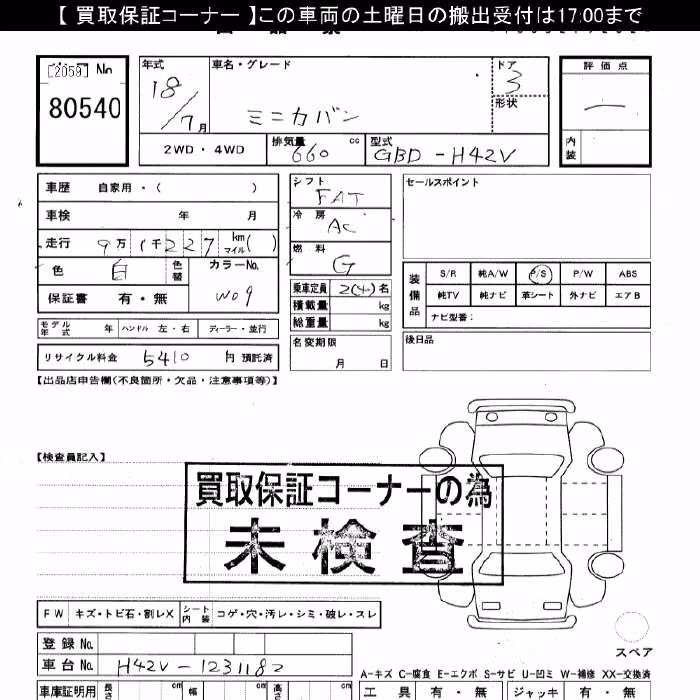 【 買取保証コーナー 】この車両の土曜日の搬出受付は17:00まで
[2059] No
80540
年式
18/7月
車名・グレード
ミニカバン
ドア
3
形状
評価点
—
内装
2WD・4WD
排気量 660 cc
型式 GBD-H42V
車歴 自家用・( )
車検 年 月
走行 9万1千227 km マイル( )
色 白 色替
カラーNo. W09
保証書 有・無
モデル年式 年 ハンドル 左・右 ディーラー・並行
リサイクル料金 5410 円 預託済
シフト FAT
冷房 AC
燃料 G
乗車定員 2(4)名
積載量 kg
総重量 kg
名変期限
月 日
セールスポイント
装備品
S/R 純A/W P/S P/W ABS
純TV 純ナビ 革シート 外ナビ エアB
ナビ型番:
後日品
【出品店申告欄(不良箇所・欠品・注意事項等)】
【検査員記入】
買取保証コーナーの為
未検査
FW キズ・トビ石・割レX シート内装 コゲ・穴・汚レ・シミ・破レ・スレ
登録No.
車台No. H42V-1231182
スペア
A-キズ C-腐食 E-エクボ S-サビ U-凹ミ W-補修 XX-交換済
車庫証明用 長さ cm 幅 cm 高さ cm
工具 有・無 ジャッキ 有・無